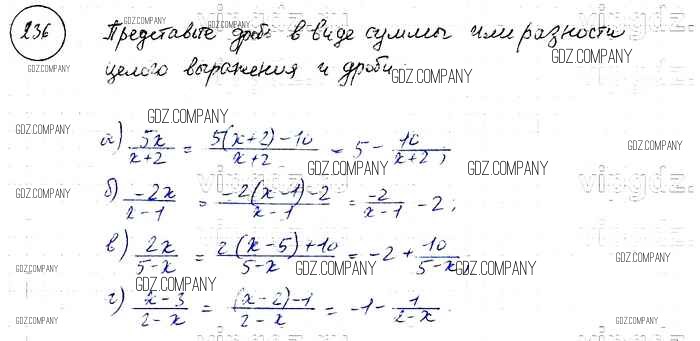 GDZ.COMPANY
236 Представьте дробь в виде суммы или разности
целого выражения и дроби.
GDZ.COMPANY
GDZ.COMPANY
GDZ.COMPANY
GDZ.COMPANY
а) 5x/(x+2) = (5(x+2)-10)/(x+2) = 5 - 10/(x+2);
GDZ.COMPANY GDZ.COMPANY GDZ.COMPANY
б) -2x/(x-1) = (-2(x-1)-2)/(x-1) = -2/(x-1) - 2;
GDZ.COMPANY GDZ.COMPANY
в) 2x/(5-x) = (2(x-5)+10)/(5-x) = -2 + 10/(5-x);
GDZ.COMPANY GDZ.COMPANY GDZ.COMPANY
GDZ.COMPANY
г) (x-3)/(2-x) = ((x-2)-1)/(2-x) = -1 - 1/(2-x).
GDZ.COMPANY GDZ.COMPANY GDZ.COMPANY